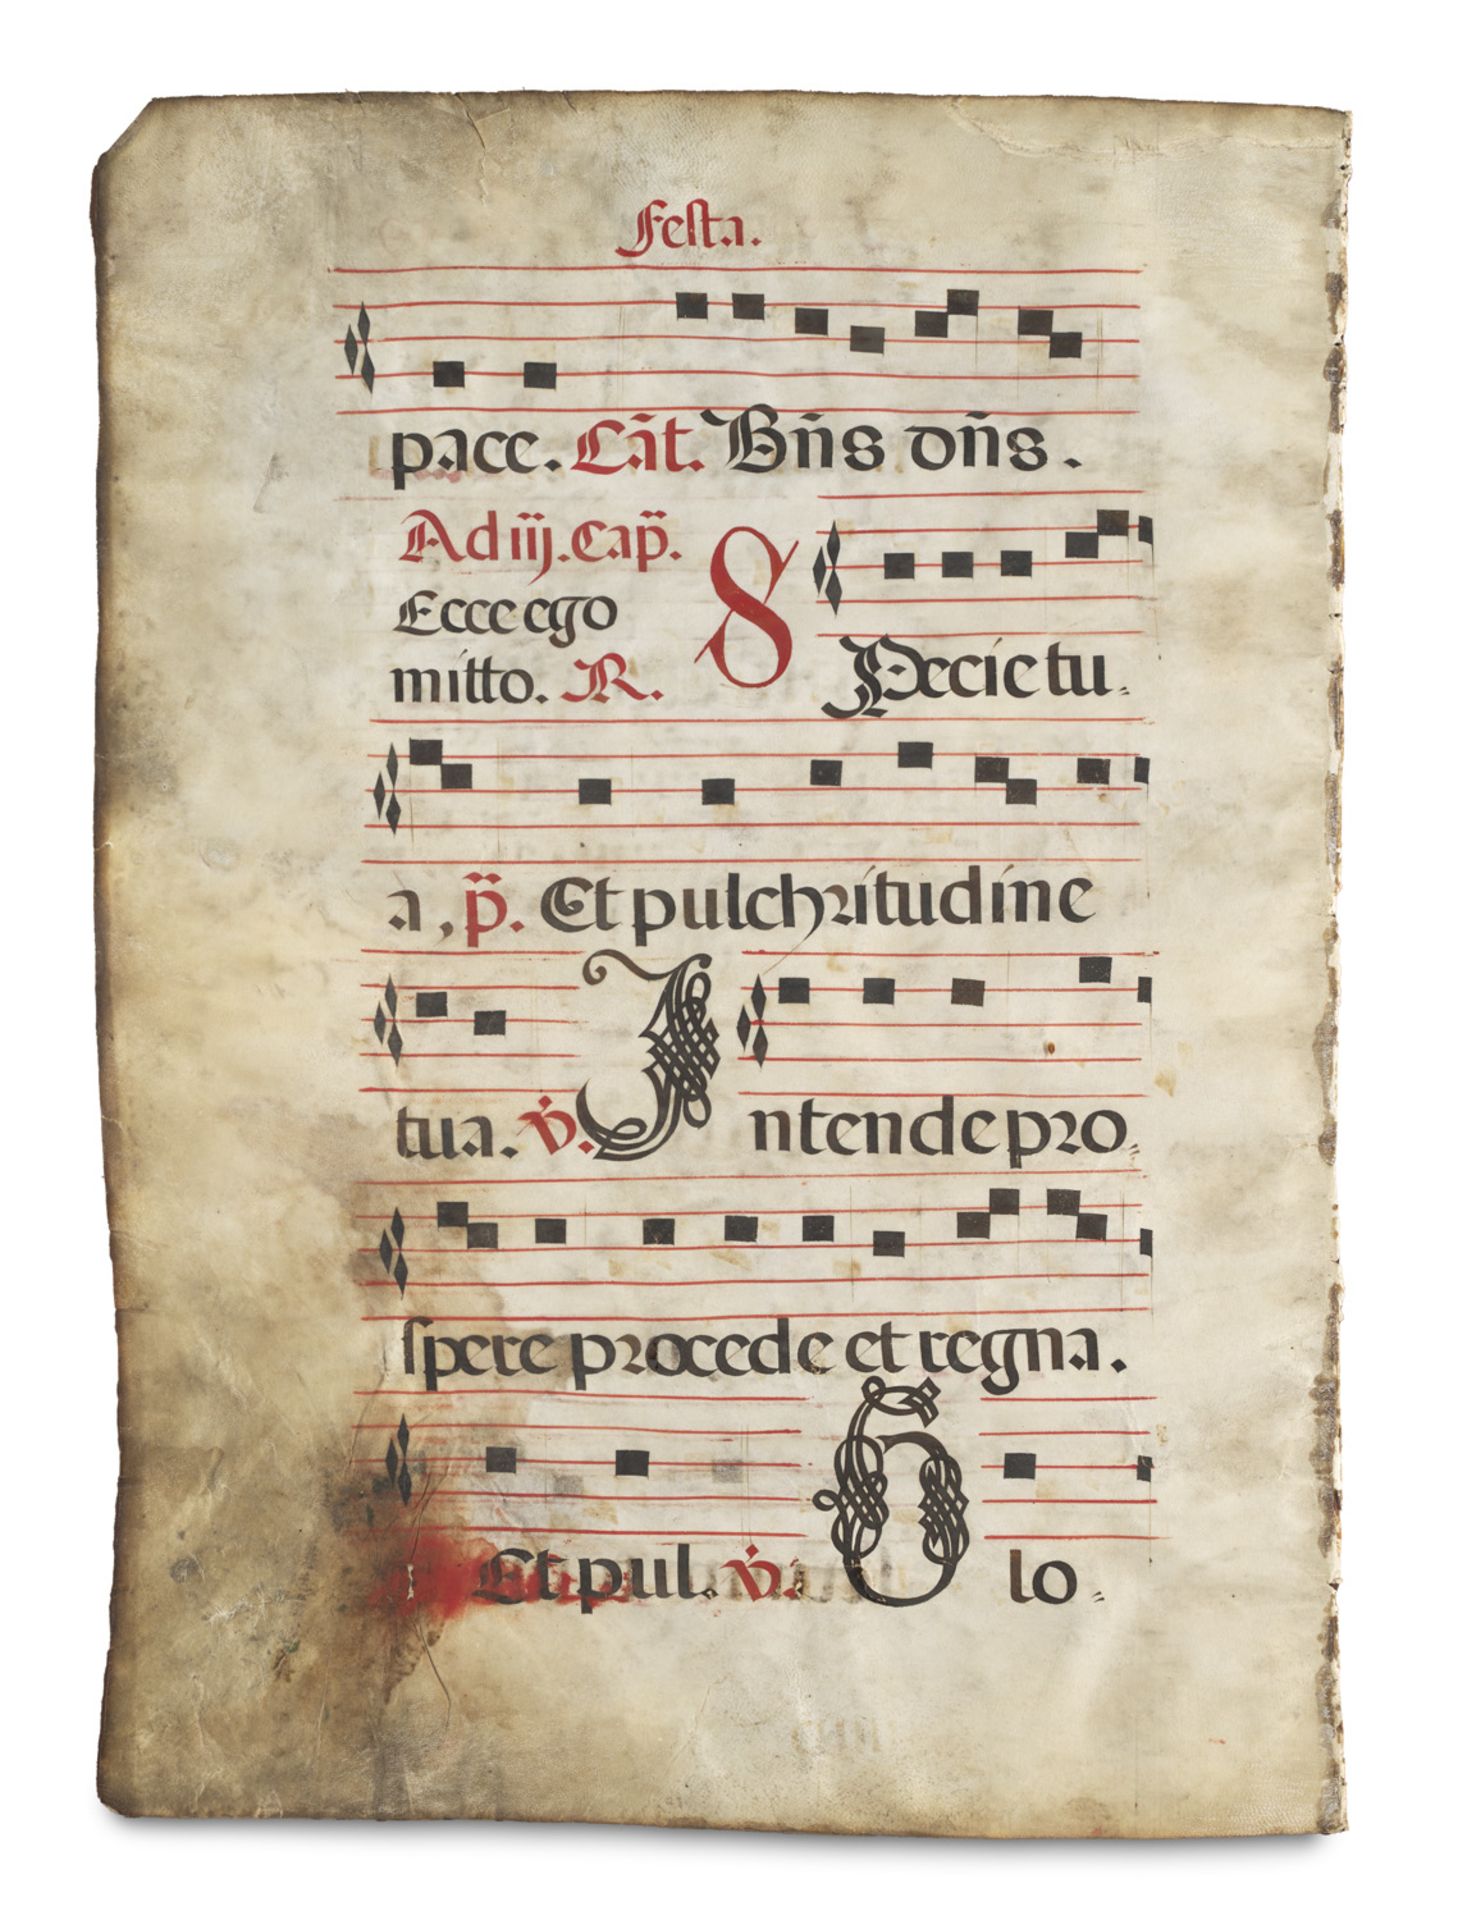 Festa.
pace. Cãt. Bñs dñs.
Ad iij. Cap̃.
Ecce ego
mitto. R.
S Pecie tu
a, p̃. Et pulchritudine
tua. v̇. Intende pro
spere procede et regna.
Et pul. v̇. Glo